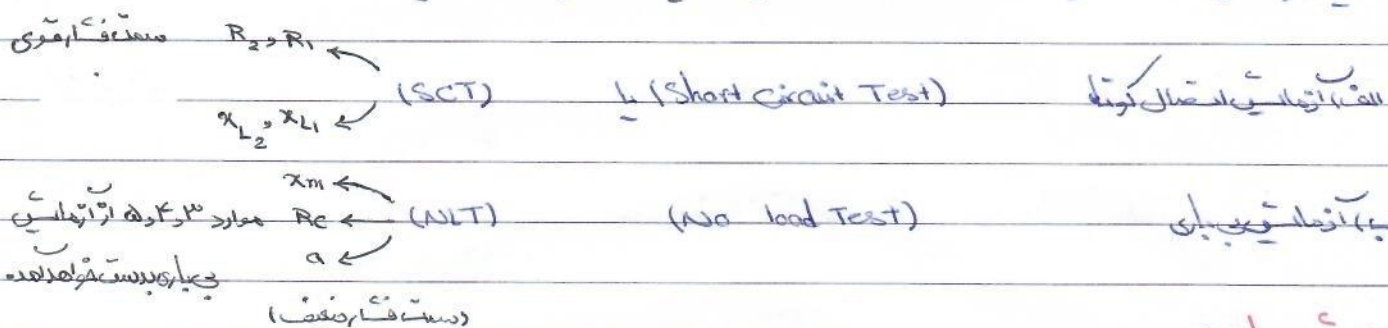 الف) آزمایش اتصال کوتاه (Short circuit Test) یا (SCT) R₂ و R₁ سمت فشار قوی
x_L₂ و x_L₁
ب) آزمایش بی باری (No load Test) (NLT) xm
Rc موارد ۳ و ۴ و ۵ از آزمایش
a بی باری بدست خواهد آمد
(سمت فشار ضعیف)